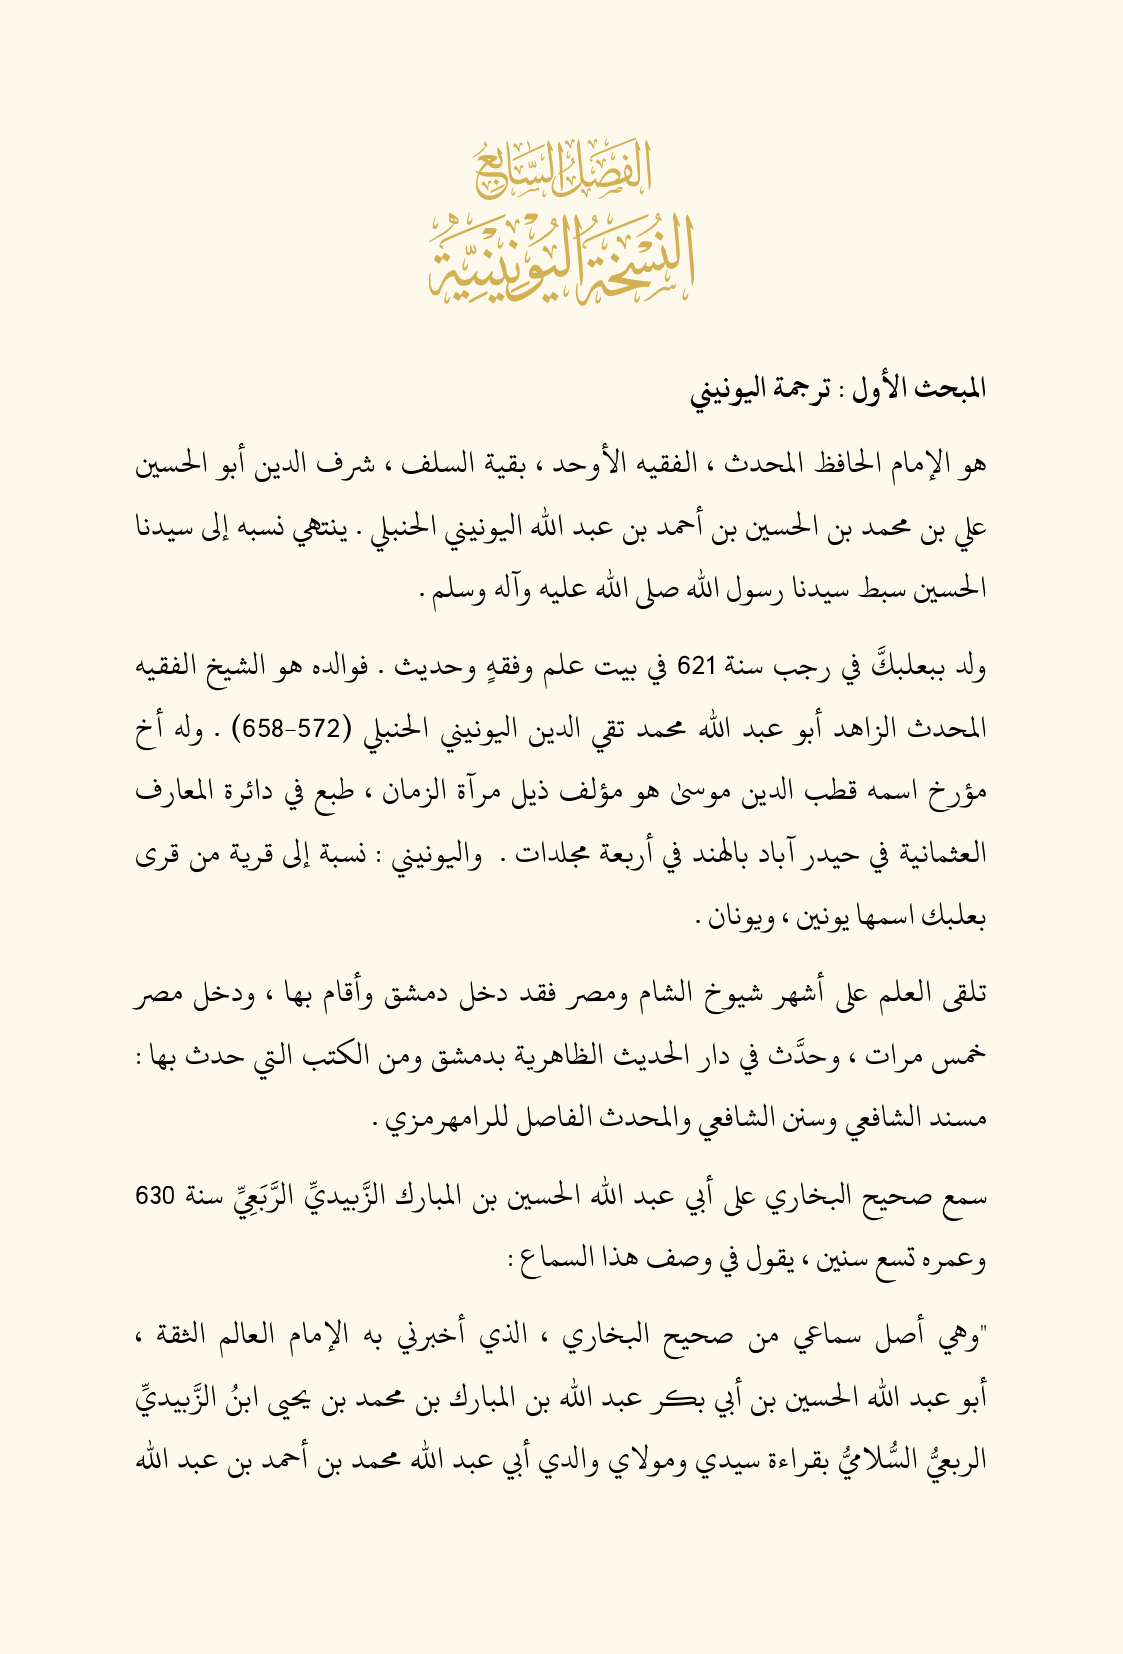 الفَصْلُ السَّابِعُ
النُسْخَةُ اليُوْنِيْنِيَّةُ
المبحث الأول : ترجمة اليونيني
هو الإمام الحافظ المحدث ، الفقيه الأوحد ، بقية السلف ، شرف الدين أبو الحسين
علي بن محمد بن الحسين بن أحمد بن عبد الله اليونيني الحنبلي . ينتهي نسبه إلى سيدنا
الحسين سبط سيدنا رسول الله صلى الله عليه وآله وسلم .
ولد ببعلبكَّ في رجب سنة 621 في بيت علم وفقهٍ وحديث . فوالده هو الشيخ الفقيه
المحدث الزاهد أبو عبد الله محمد تقي الدين اليونيني الحنبلي (572-658) . وله أخ
مؤرخ اسمه قطب الدين موسىٰ هو مؤلف ذيل مرآة الزمان ، طبع في دائرة المعارف
العثمانية في حيدر آباد بالهند في أربعة مجلدات . واليونيني : نسبة إلى قرية من قرى
بعلبك اسمها يونين ، ويونان .
تلقى العلم على أشهر شيوخ الشام ومصر فقد دخل دمشق وأقام بها ، ودخل مصر
خمس مرات ، وحدَّث في دار الحديث الظاهرية بدمشق ومن الكتب التي حدث بها :
مسند الشافعي وسنن الشافعي والمحدث الفاصل للرامهرمزي .
سمع صحيح البخاري على أبي عبد الله الحسين بن المبارك الزَّبيديِّ الرَّبَعِيِّ سنة 630
وعمره تسع سنين ، يقول في وصف هذا السماع :
"وهي أصل سماعي من صحيح البخاري ، الذي أخبرني به الإمام العالم الثقة ،
أبو عبد الله الحسين بن أبي بكر عبد الله بن المبارك بن محمد بن يحيى ابنُ الزَّبيديِّ
الربعيُّ السُّلاميُّ بقراءة سيدي ومولاي والدي أبي عبد الله محمد بن أحمد بن عبد الله